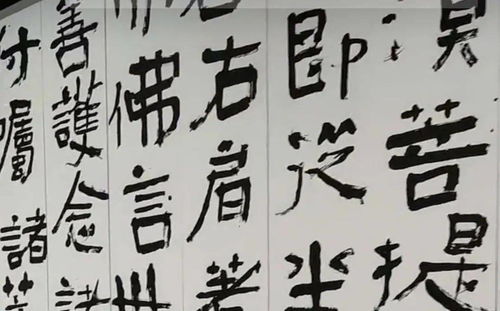 菩提
即從坐
右肩著
佛言世
善護念諸
付囑諸菩